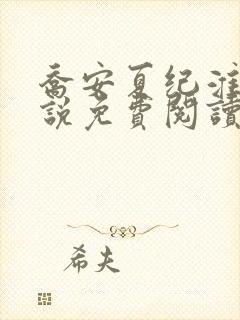 喬安夏纪淮
說免費閱讀
希夫